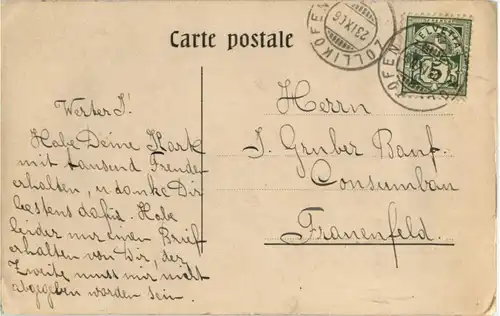 Carte postale
ZOLLIKOFEN
23.IX.06
HELVETIA
5
Werter J!
Habe Deine Kark
mit tausend Freuden
erhalten, u danke Dir
bestens dafür. Habe
leider nur einen Brief
erhalten von Dir, der
Zweite must mir nicht
abgegeben worden sein.
Herrn
J. Gruber
Frauenfeld.